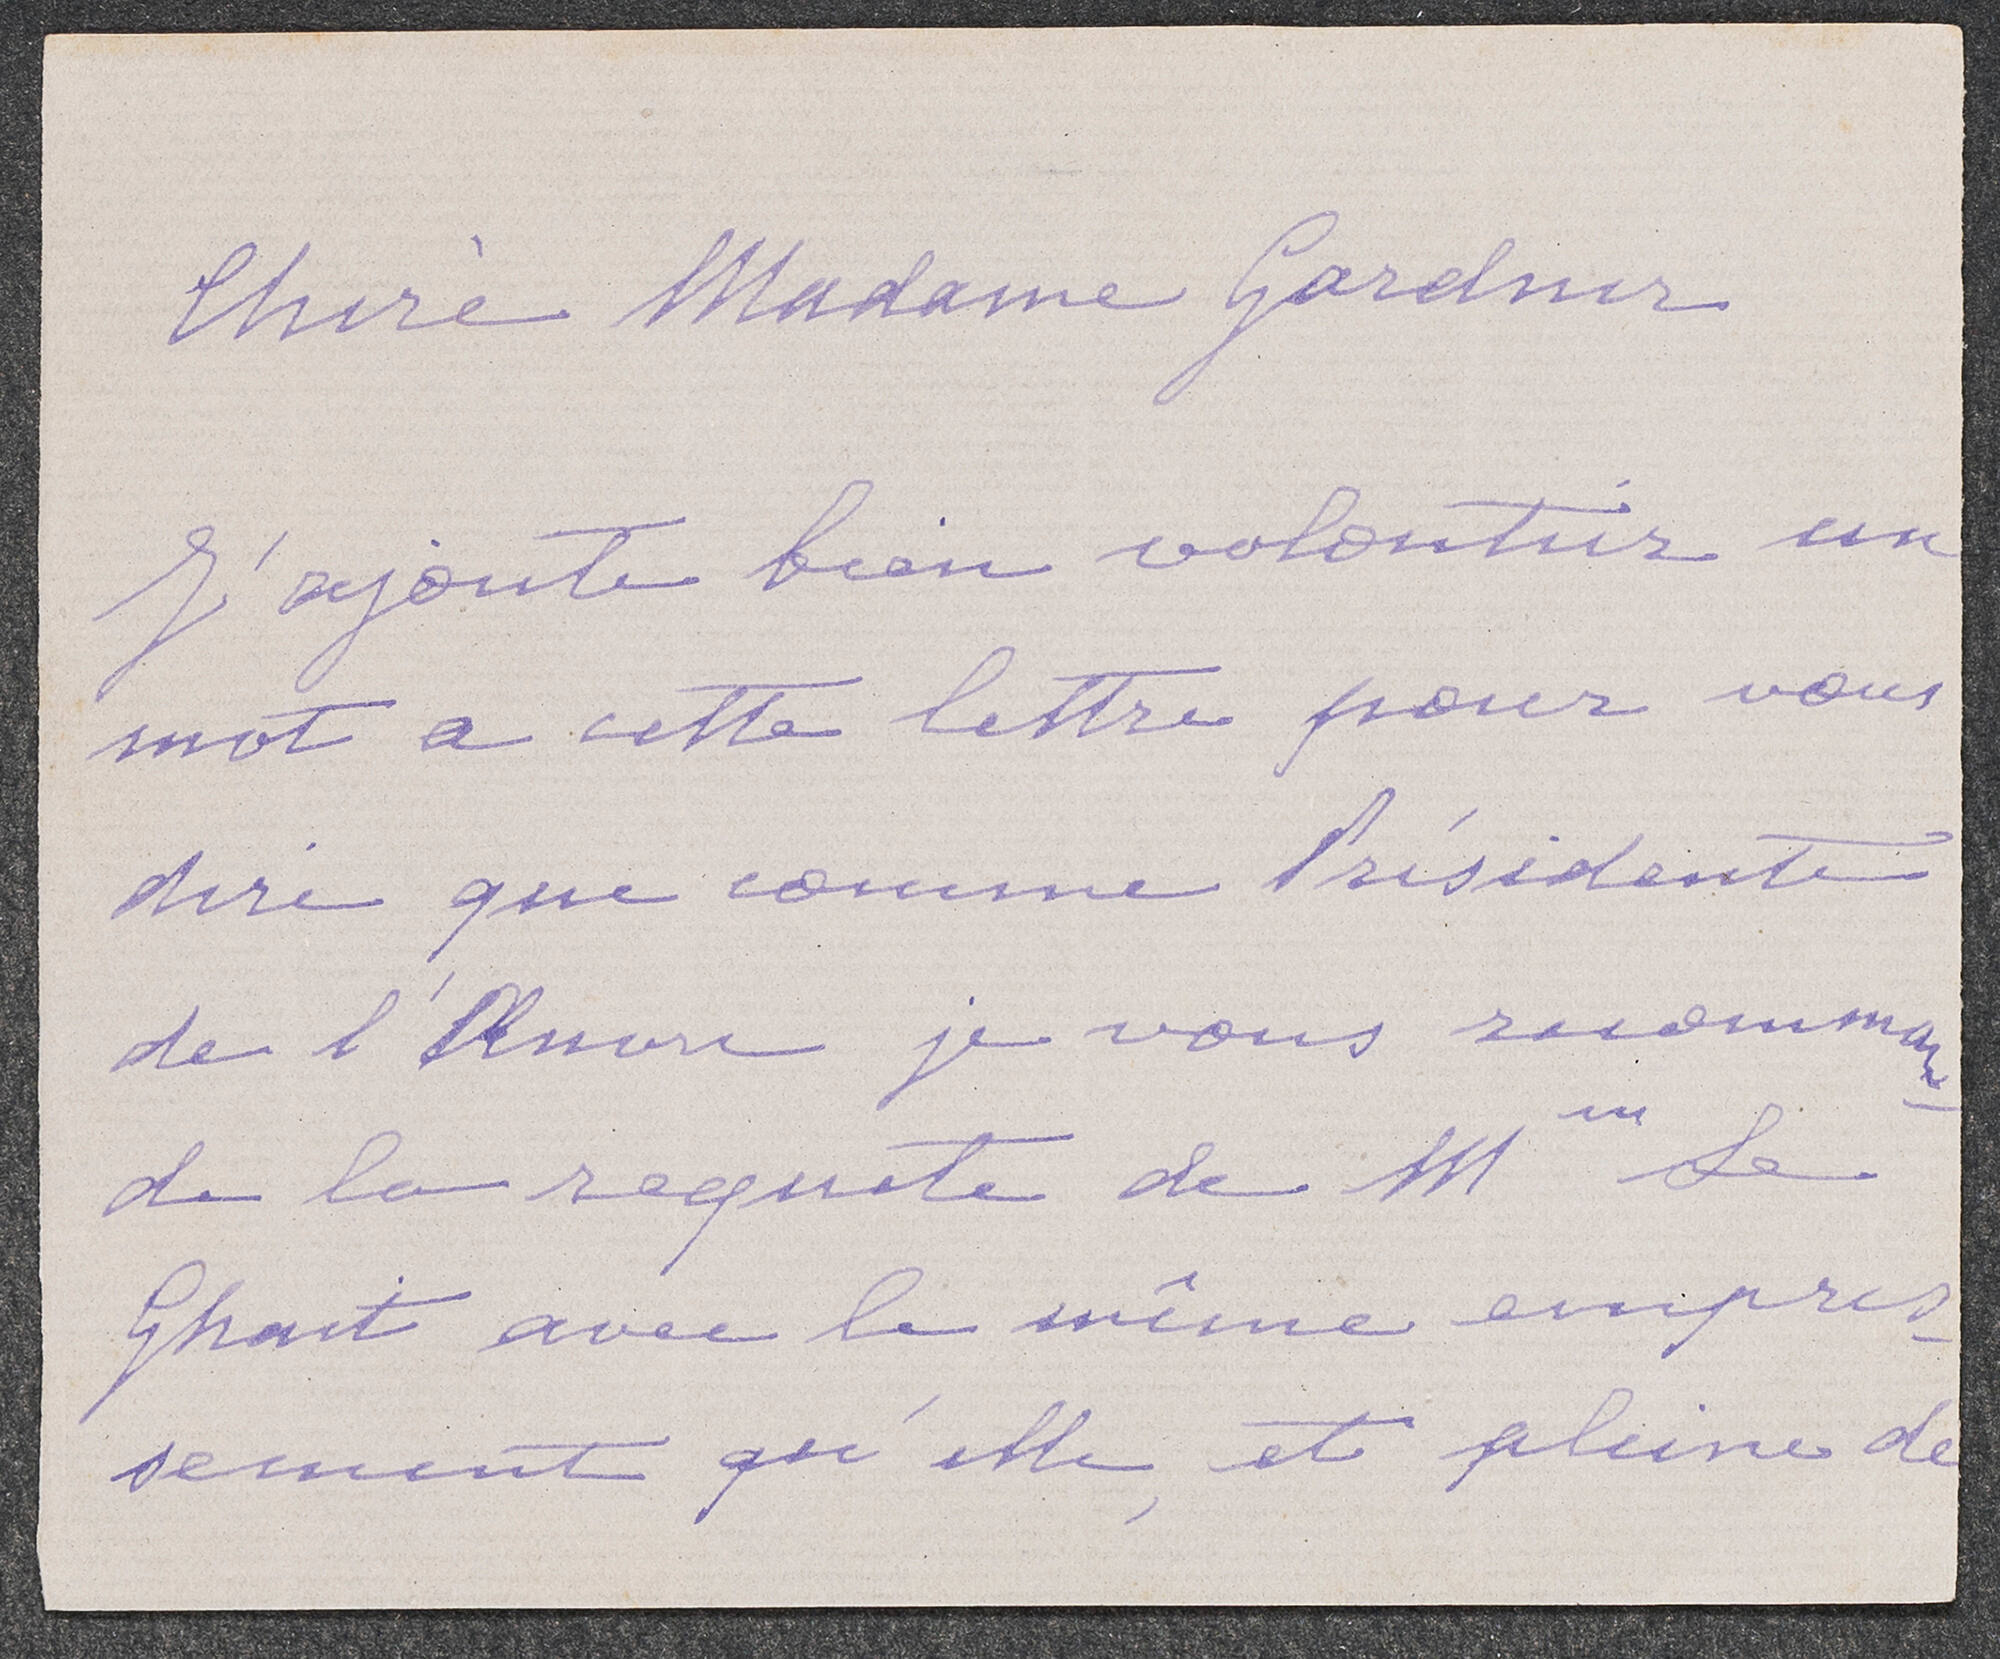 Chère Madame Gardner
J'ajoute bien volontier un
mot a cette lettre pour vous
dire que comme Présidente
de l'Œuvre je vous recomman-
de la requete de Mme Le
Ghait avec le même empres-
sement qu'elle, et pleine de